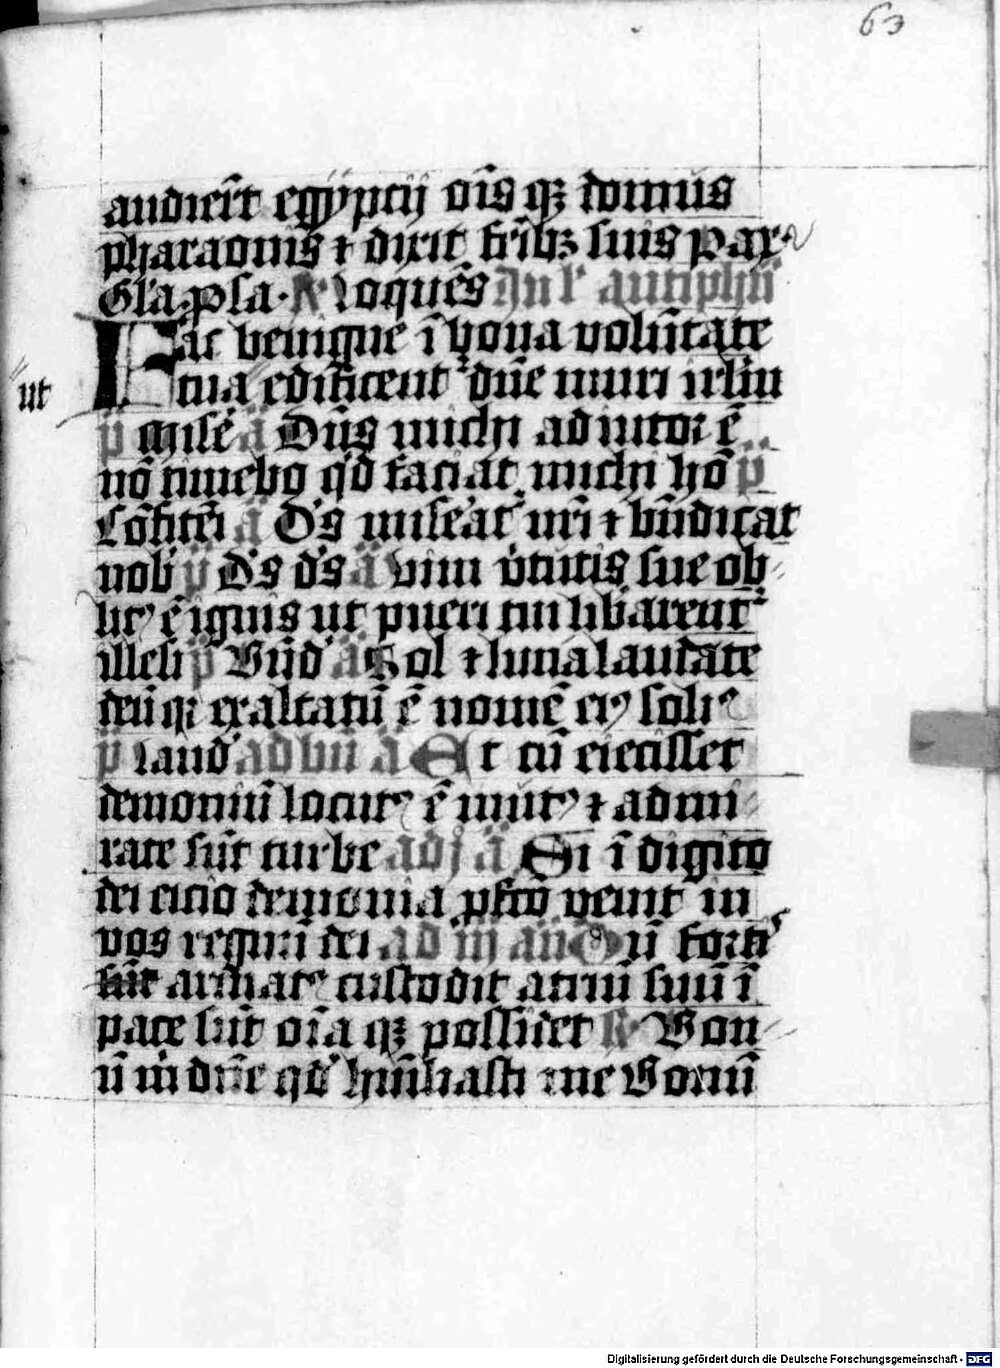 63
audierūt egyptij oīs qꝫ domus
pharaonis ⁊ dixit fr̄ibꝫ suis Pax
Gl'a pſa. R loques In l' antiphū
Fac benigne ī bona volūtate
ut
tua edificent᷑ dn̄e muri irl̄m
p̄ Miſe' ā Dn̄s michi adiutor ē
nō timebo qd' faciat michi hō p̄
Cōfitēi ā D's miſe'at᷑ nr̄i ⁊ bn̄dicat
nob' p̄ D's d's ā vim v̓tutis ſue ob
litꝰ ē ignis ut pueri tui lib̓arent᷑
illeſi p̄ Bn̄d' ā Sol ⁊ luna laudate
deū qꝛ exaltatū ē nomē eiꝰ ſoliꝰ
p̄ laud' ad bn̄ ā Et cū eieciſſet
demoniū locutꝰ ē mutꝰ ⁊ admi
rate ſūt turbe ad j ā Si ī digito
dei eicio demonia pfc̄o veniet in
vos regnū dei ad iij an̄ Dū forti
ſūt armatꝰ cuſtodit atriū ſuū ī
pace ſūt oīa qꝫ poſſidet R Bon
ū m̄ dn̄e qd' hūiliaſti me Bonū
Digitalisierung gefördert durch die Deutsche Forschungsgemeinschaft - DFG